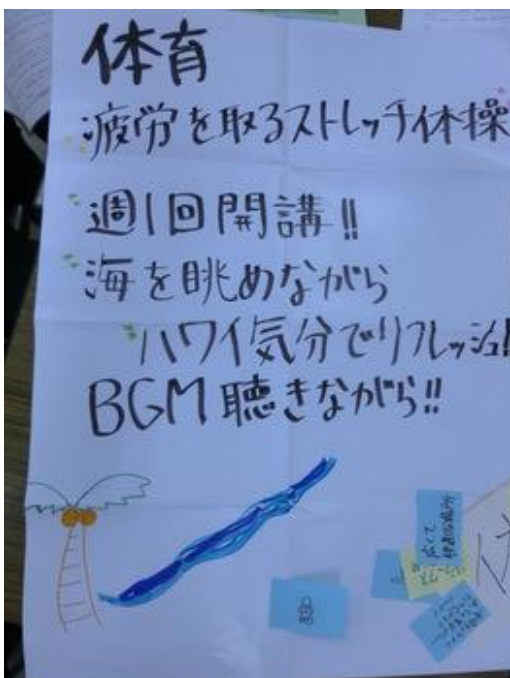 体育
疲労を取るストレッチ体操
週1回開講!!
海を眺めながら
ハワイ気分でリフレッシュ!
BGM聴きながら!!
広くて